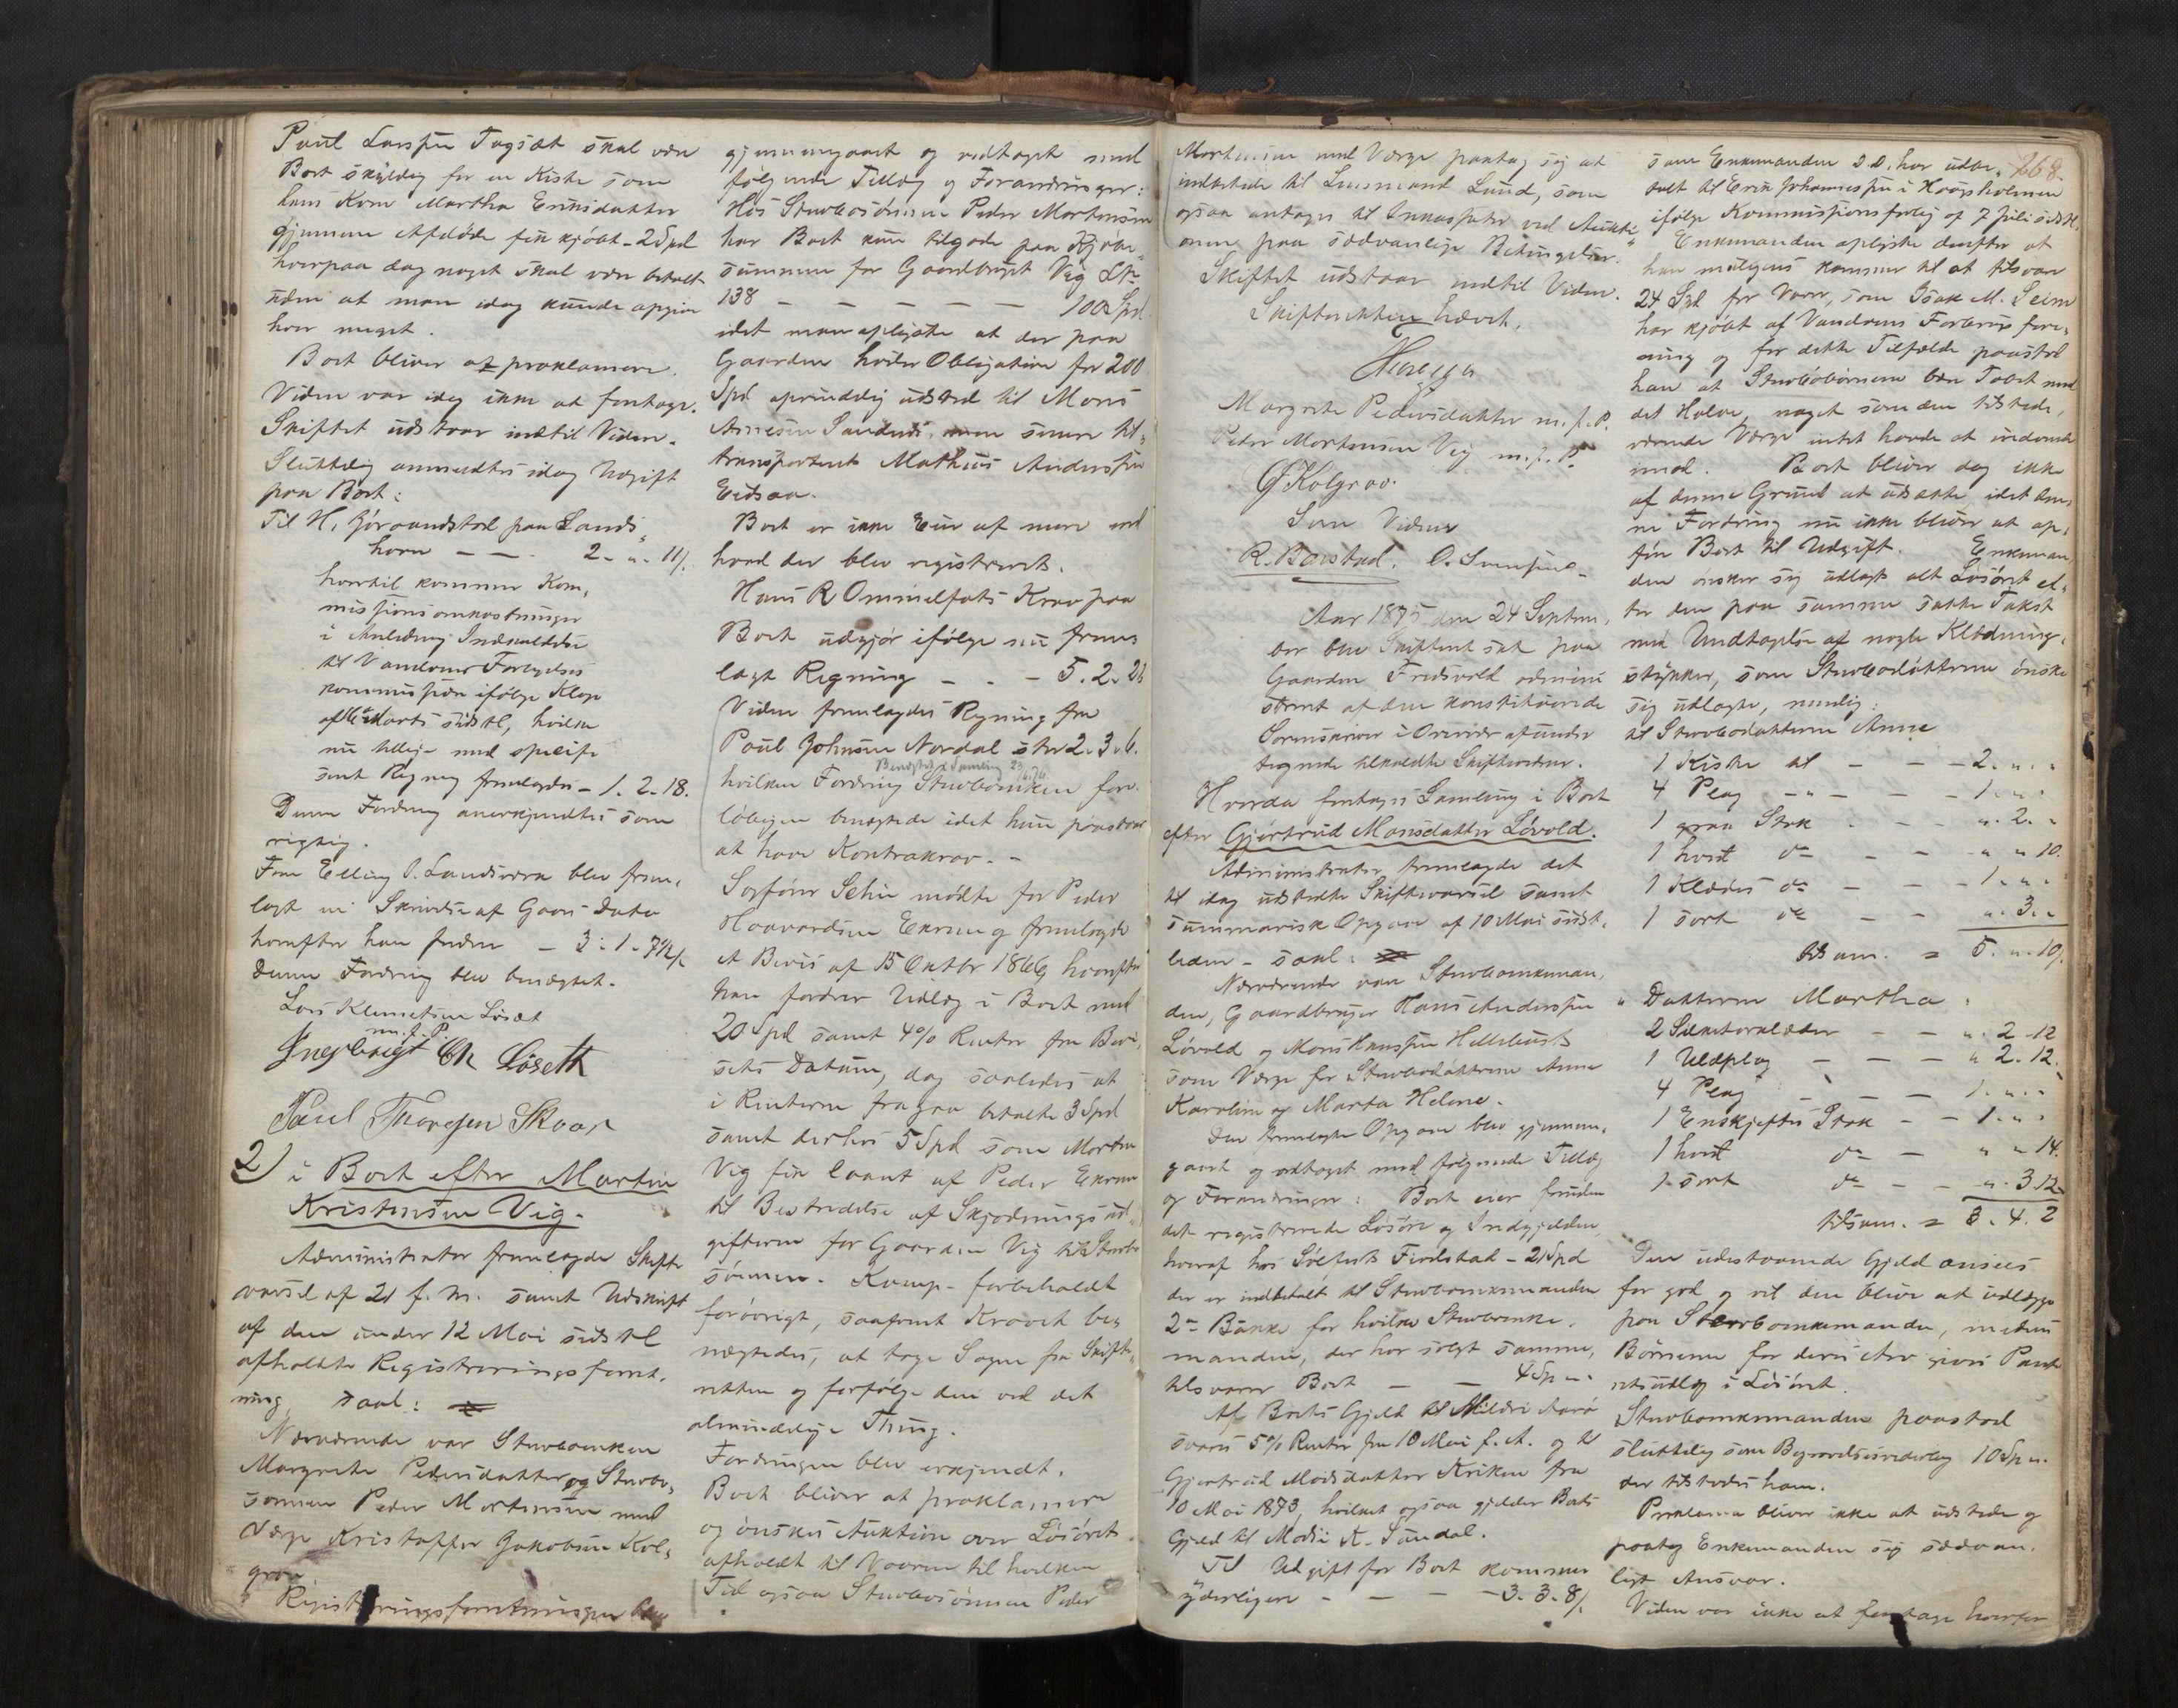 Paul Larssen Tagsæt skal være
Boet skyldig for en Kiste som
hans Kone Martha Eriksdatter
gjennem Afdøde fik kjøbt - 2 Spd
hvorpaa dog noget skal være betalt
uden at man idag kunde opgive
hvor meget.
Boet bliver at proklamere.
Videre var idag ikke at foretage.
Skiftet udstaar indtil Videre.
Sluttelig anmeldtes idag Udgift
paa Boet:
Til H. Jøraandstad paa Lands-
horn — — 2 - " - 11 /.
hvortil kommer Kom-
missionsomkostninger
i Anledning Indkaldelse
til Vandrens Forligelses
kommission ifølge Klage
af Marts sidstl, hvilke
nu tillige med specifi
seret Regning fremlagdes - 1. 2. 18.
Denne Fordring anerkjendtes som
rigtig.
Fra Elling O. Landsværk blev frem-
lagt en Skrivelse af Gaars Dato
hvorefter han fordrer — 3. 1. 7½ /.
Denne Fordring blev benægtet.
Lars Klemetsen Løset
m. f. P.
Ingebrigt Løseth
Paul Thoresen Skaar
2) i Boet efter Martin
Kristensen Vig.
Administrator fremlagde Skifte
varsel af 21 f. M. samt Udskrift
af den under 12 Mai sidstl
afholdte Registreringsforret-
ning, saal:
Nærværende var Stervboenken
Margrete Pedersdatter og Stervbo-
sønnen Peder Mortensen med
Værge Kristoffer Jakobsen Kol-
grov.
Registreringsforretningen blev
gjennemgaaet og vedtaget med
følgende Tillæg og Forandringer:
Hos Stervbosønnen Peder Mortensen
har Boet kun tilgode paa Kjøbe-
summen for Gaardbruget Vig LNo
138 — — — — — 100 Spd.
idet man oplyste at der paa
Gaarden hviler Obligation for 200
Spd oprindelig udstæd til Mons
Arnesen Sandnes, men senere til-
transporteret Mathias Andersen
Eidsaa.
Boet er ikke Eier af mere end
hvad der blev registreret.
Hans R Ommelfots Krav paa
Boet udgjør ifølge nu frem-
lagt Regning — . — 5. 2. 21
Videre fremlagdes Regning fra
Paul Johnsen Nordal stor 2. 3. 6.
Benægtet i Samling 23/
hvilken Fordring Stervboenken fore-
løbigen benægtede idet hun paastaar
at have Kontrakrav. -
Sagfører Sehu mødte for Peder
Haavardsen Ekrem og fremlagde
et Bevis af 15 Oktbr 1866 hvorefter
han fordrer Udlæg i Boet med
20 Spd samt 4% Renter fra Bevi-
sets Datum, dog saaledes at
i Renterne fragaar betalte 3 Spd
samt derhos 5 Spd som Morten
Vig fik laant af Peder Ekrem
til Bestridelse af Skjødningsud-
gifterne for Gaarden Vig til Stervbo
sønnen. Komp. forbeholdt
forøvrigt, saafremt Kravet be-
nægtedes, at tage Sagen fra Skifte-
retten og forfølge den ved det
almindelige Thing.
Fordringen blev erkjendt.
Boet bliver at proklamere
og ønskes Auktion over Løsøret
afholdt til Vaaren til hvilken
Tid ogsaa Stervbosønnen Peder
Mortensen med Værge paatog sig at
indbetale til Lensmand Lund, som
ogsaa antages til Inkassator ved Aukti-
onen paa sædvanlige Betingelser.
Skiftet udstaar indtil Videre.
Skifteretten hævet.
Margrete Pedersdatter m. f. P.
Peder Mortensen Vig m. f. P.
Kolgrov.
Som Vidner
R. Barstad. O. Svensen.
Aar 1875 den 24 Septem-
ber blev Skifteret sat paa
Gaarden Fredsvold admini
streret af den konstituerede
Sorenskriver i Overvær af under
tegnede tilkaldte Skiftevidner.
Hvorda foretoges Samling i Boet
efter Gjørtrud Monsdatter Løvold.
Administrator fremlagde det
til idag udstedte Skiftevarsel samt
summarisk Opgave af 10 Mai sidst-
leden - saal:
Nærværende var Stervboenkeman-
den, Gaardbruger Hans Andersen
Løvold og Mons Hanssen Hellebust
som Værge for Stervbodøttrene Anne
Karoline og Marta Helene.
Den fremlagte Opgave blev gjennem-
gaaet og vedtaget med følgende Tillæg
og Forandringer: Boet eier foruden
det registrerede Løsøre og Indgjelden,
hvoraf hos Sølfest Fredstad - 21 Spd
der er indbetalt til Stervboenkemanden
2de Bænke for hvilke Stervboenke-
manden, der har solgt samme,
tilsvarer Boet — — 4 Sp "
Af Boets Gjeld til Mildri Aarø
svares 5% Renter fra 10 Mai f. A. og til
Gjertrud Madsdatter Kriken fra
10 Mai 1873, hvilket ogsaa gjelder Boets
Gjeld til Mads A. Sundal.
Til Udgift for Boet kommer
yderligere - — - — 3. 3. 8 /.
268.
som Enkemanden d. D. har udbe-
talt til Erik Johannessen i Haugsholmen
ifølge Kommissionsforlig af 7 Juli sidstl.
Enkemanden oplyste derefter at
han muligens kommer til at tilsvare
24 Spd for Varer, som Isak M. Seim
har kjøbt af Vandrens Forbrugsfore-
ning og for dette Tilfælde paastod
han at Stervbobørnene bær Tabet med
det Halve, noget som den tilstede-
værende Værge intet havde at indvende
imod. Boet bliver dog ikke
af denne Grund at udsætte idet den-
ne Fordring nu ikke bliver at op-
føre Boet til Udgift. Enkeman-
den ønsker sig udlagt alt Løsøret ef-
ter den paa samme satte Takst
med Undtagelse af nogle Klædnings-
stykker, som Stervbodøttrene ønske
sig udlagte, nemlig:
til Stervbodatteren Anne
1 Kiste til — — — 2. " "
4 Plag — " — — — 1. " "
1 graa Stak . — — ". 2. "
1 hvid do — — " " 10.
1 Klædes do — — — 1. " "
1 sort do — — ". 3. "
tilsam. = 5. ". 10 /.
" Datteren Martha:
2 Silketørklæder — — ". 2 - 12
1 Uldplag — — — " 2. 12.
4 Plag — — — 1. " "
1 Enskjeftes Stak — — 1. " "
1 hvid do — " " 14.
1 sort do — — ". 3 12.
tilsam. = 3. 4. 2
Den udestaaende Gjeld ansees
for god og vil den blive at udlægge
paa Stervboenkemanden, medens
Børnene for deres Arv gives Pante
retsudlæg i Løsøret.
Stervboenkemanden paastod
sluttelig som Begravelsesvederlag 10 Sp "
der tilstodes ham.
Proklama bliver ikke at udstede og
paatog Enkemanden sig sædvan-
ligt Ansvar.
Videre var ikke at foretage hvorfor